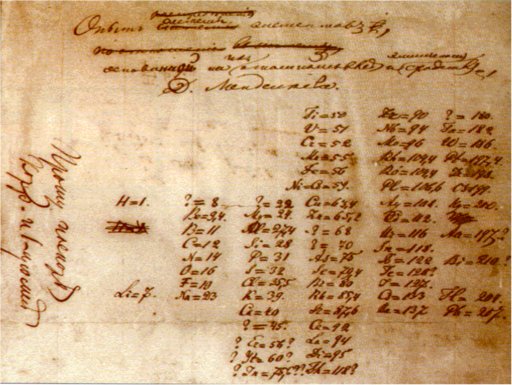 Опытъ системы элементовъ,
основанной на ихъ атомномъ вѣсѣ и химическомъ сходствѣ,
Д. Менделѣева.
Ti=50 Zr=90 ?=180.
V=51 Nb=94 Ta=182
Cr=52 Mo=96 W=186
Mn=55 Rh=104,4 Pt=197,4
Fe=56 Ru=104,4 Ir=198
Ni=Co=59 Pl=106,6 Os=199
H=1. ?=8 ?=22 Cu=63,4 Hg=200
Be=9,4 Mg=24 Zn=65,2 Cd=112
B=11 Al=27,4 ?=68 Ur=116 Au=197?
C=12 Si=28 ?=70 Sn=118
N=14 P=31 As=75 Sb=122 Bi=210?
O=16 S=32 Se=79,4 Te=128?
F=19 Cl=35,5 Br=80 J=127
Li=7. Na=23 K=39 Rb=85,4 Cs=133 Tl=204
Ca=40 Sr=87,6 Ba=137 Pb=207
?=45 Ce=92
? Er=56? La=94
? Yt=60? Di=95
? In=75,6?? Th=118?
Прошу